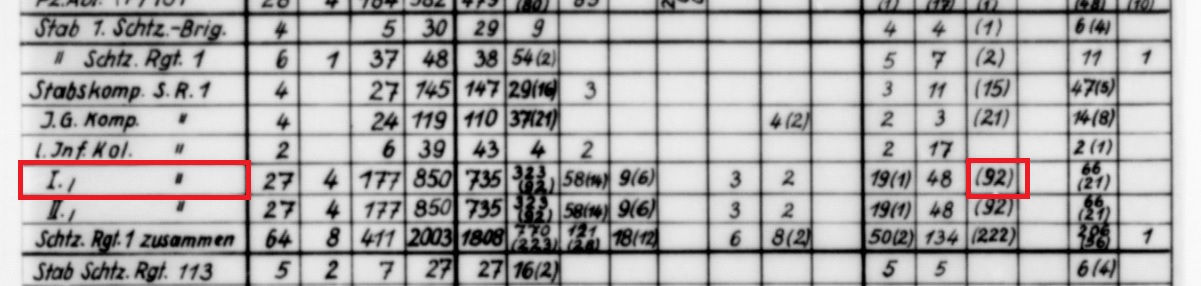 Stab 1. Schtz.-Brig. 4 5 30 29 9 4 4 (1) 6(4)
" Schtz. Rgt. 1 6 1 37 48 38 54(2) 5 7 (2) 11 1
Stabskomp. S.R.1 4 27 145 147 29(16) 3 3 11 (15) 47(5)
J.G. Komp. " 4 24 119 110 37(21) 4(2) 2 3 (21) 14(8)
l. Jnf. Kol. " 2 6 39 43 4 2 2 17 2(1)
I., " 27 4 177 850 735 323 (92) 58(14) 9(6) 3 2 19(1) 48 (92) 66 (21)
II., " 27 4 177 850 735 323 (92) 58(14) 9(6) 3 2 19(1) 48 (92) 66 (21)
Schtz. Rgt.1 zusammen 64 8 411 2003 1808 770 (223) 121 (28) 18(12) 6 8(2) 50(2) 134 (222) 206 (56) 1
Stab Schtz. Rgt. 113 5 2 7 27 27 16(2) 5 5 6(4)